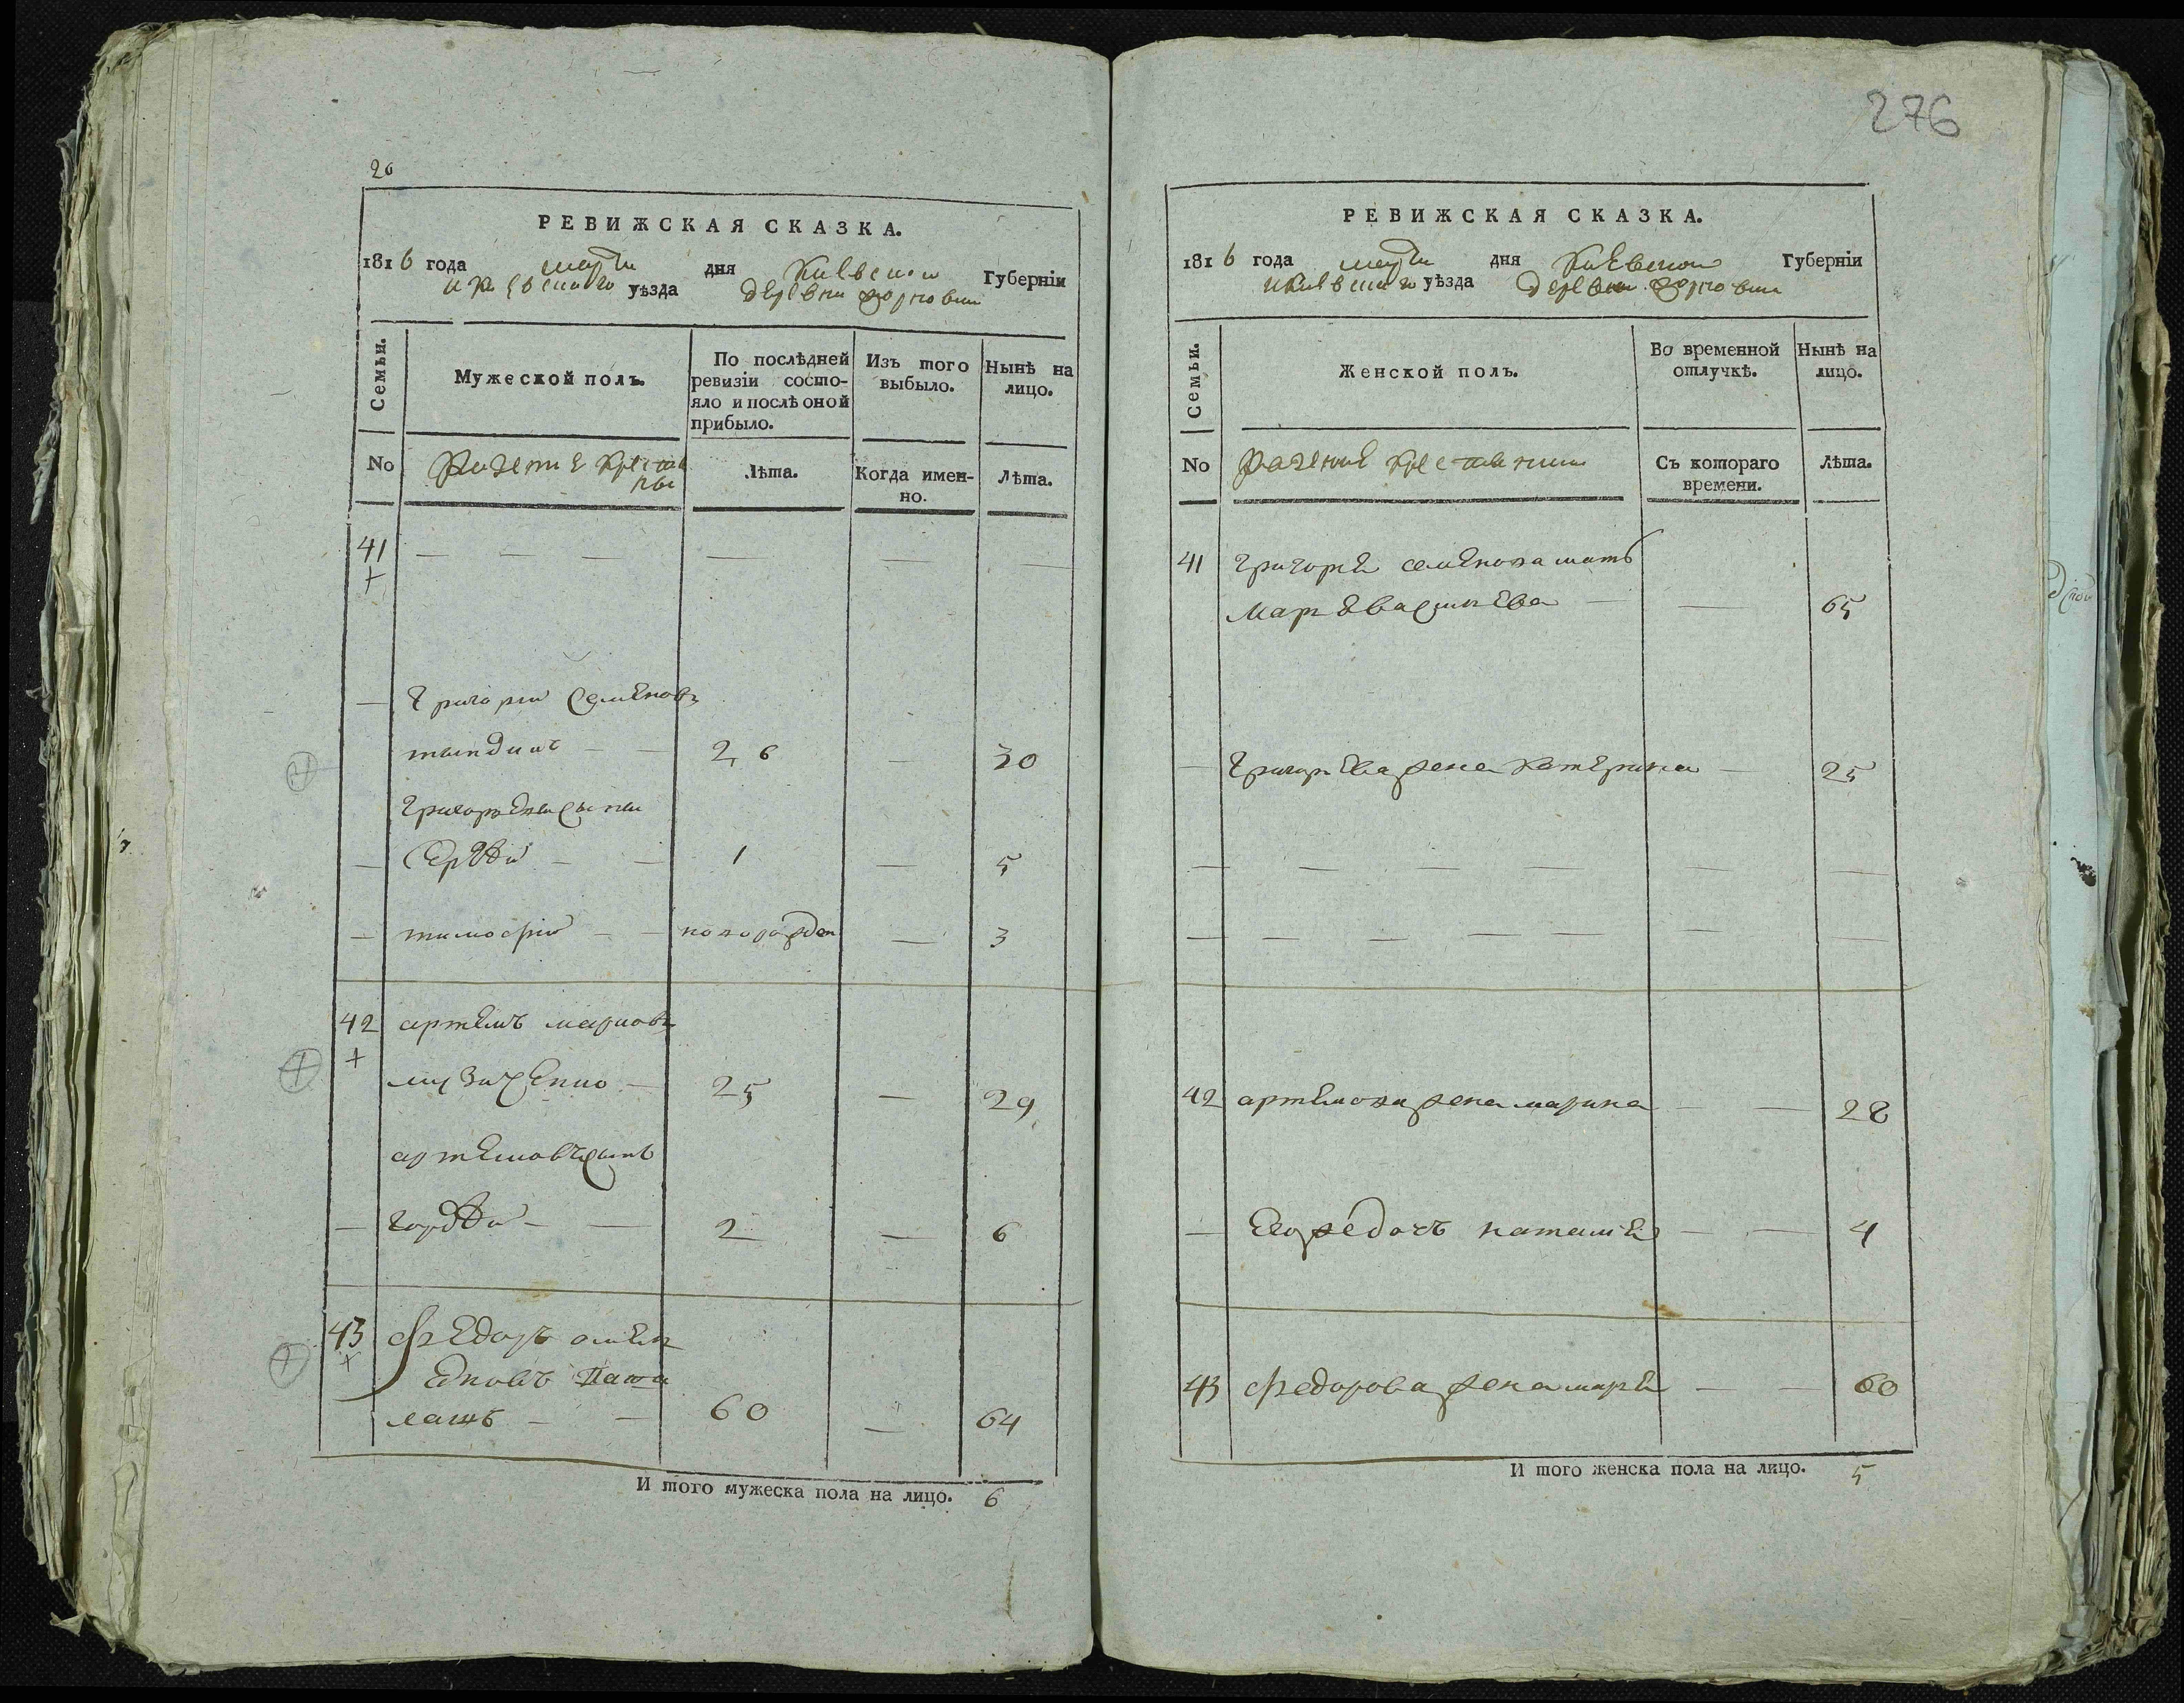 276
20
РЕВИЖСКАЯ СКАЗКА.
1816 года марта дня Киевской Губерніи
и Киевского уѣзда деревни
Семьи.
Мужеской полъ.
По послѣдней ревизіи состо-
яло и послѣ оной
прибыло.
Изъ того
выбыло.
Нынѣ на
лицо.
No
крестья
ны
Лѣта.
Когда имен-
но.
Лѣта.
41
Григорий Семеновъ
26 30
Григорьевы сыны
Сергѣй 1 5
тимофій новорожден 3
42 артемъ марковъ
музиченко 25 29
артемовъ сынъ
гордѣй 2 6
43 федоръ омел
яновъ Пата
лашъ 60 64
И того мужеска пола на лицо. 6
РЕВИЖСКАЯ СКАЗКА.
1816 года марта дня Киевской Губерніи
и Киевского уѣзда деревни
Семьи.
Женской полъ.
Во временной
отлучкѣ.
Нынѣ на
лицо.
No
крестьянки
Съ котораго
времени.
Лѣта.
41 григорея семенова мать
Маря Васильева 65
Григорьева жена Катерина 25
42 артемова жена марина 28
Егоже дочь наталия 4
43 федорова жена маря 60
И того женска пола на лицо. 5